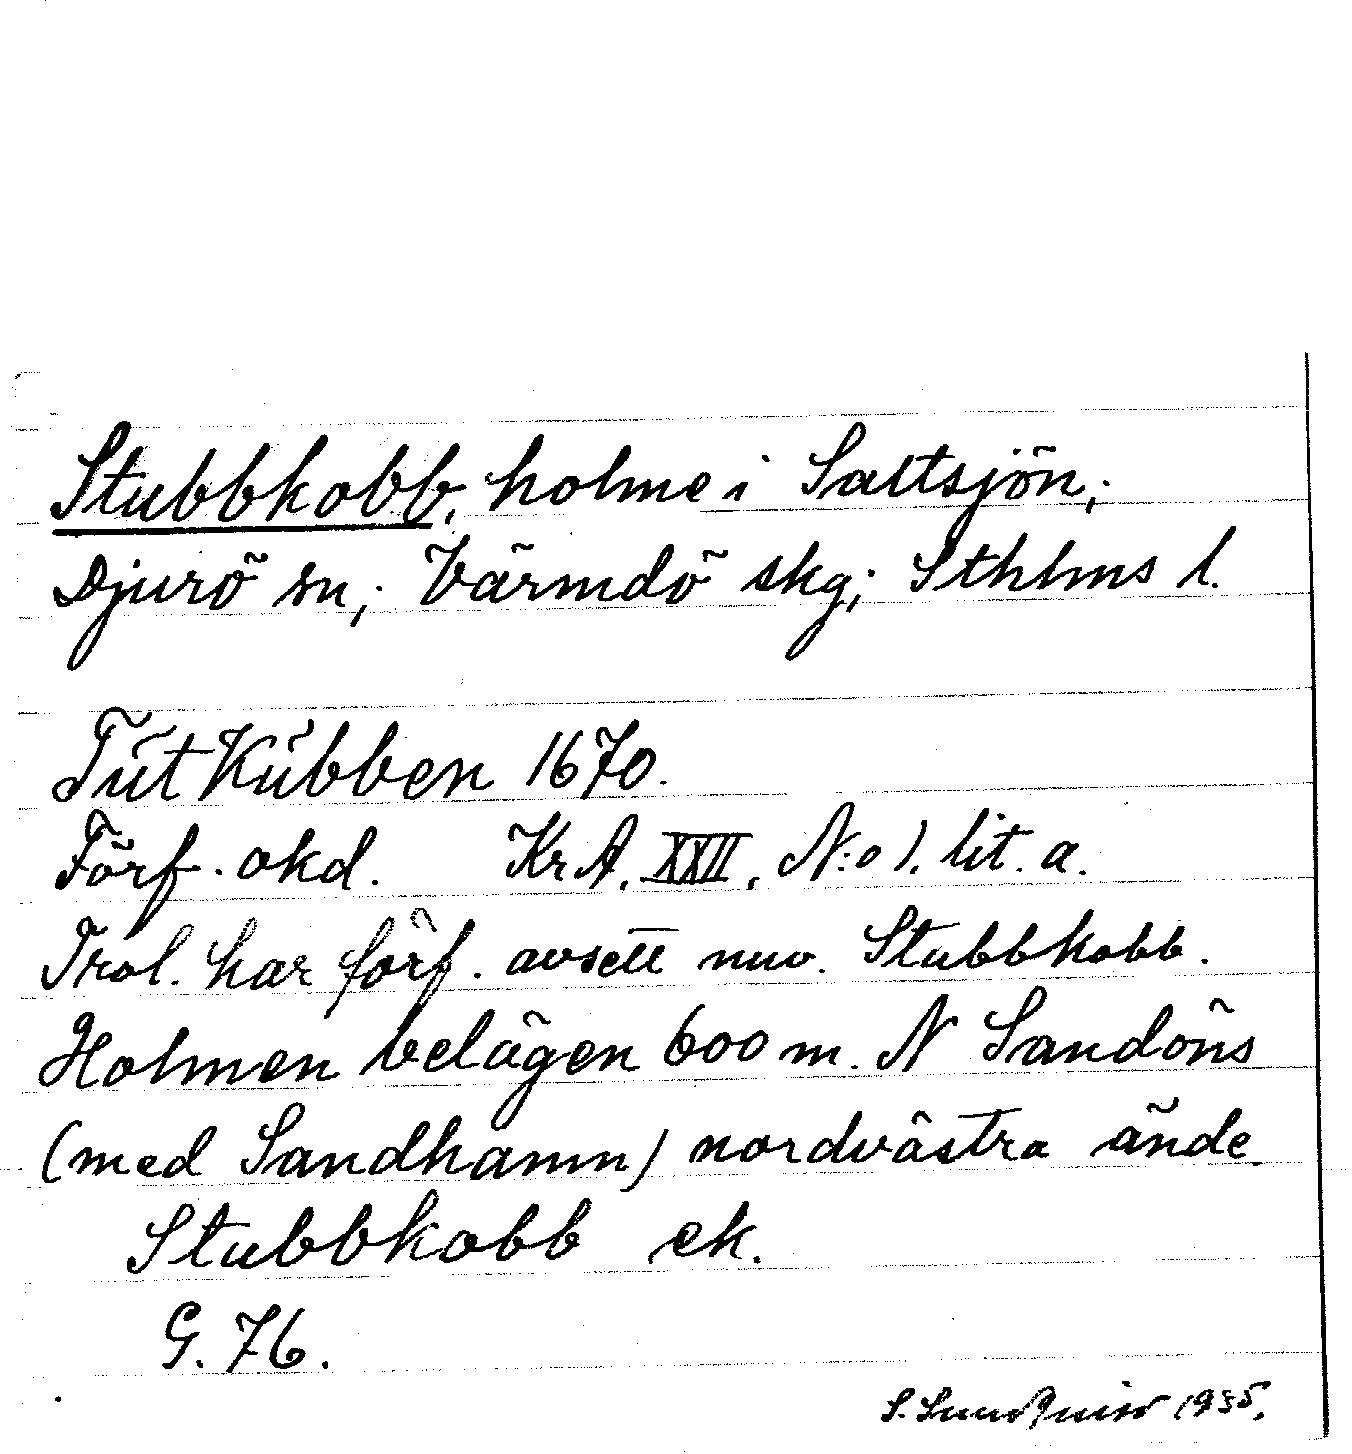 Stubbkobb, holme i Saltsjön;
Djurö sn; Värmdö skg; Sthlms l.
Tút Kübben 1670.
Förf. okd. KrA, XXII, N:o 1. lit. a.
Trol. har förf. avsett nuv. Stubbkobb.
Holmen belägen 600 m. N Sandöns
(med Sandhamn) nordvästra ände.
Stubbkobb ek.
G. 76.
S. Lundquist 1935.